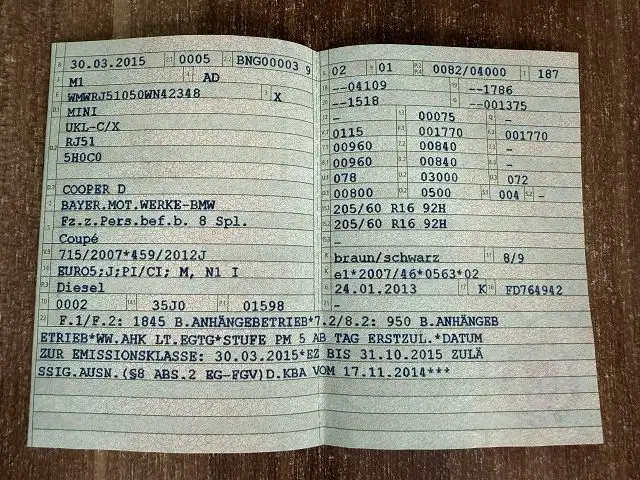 30.03.2015 0005 BNG00003 9
M1 AD
WMWRJ51050WN42348 X
MINI
UKL-C/X
RJ51
5H0C0
COOPER D
BAYER.MOT.WERKE-BMW
Fz.z.Pers.bef.b. 8 Spl.
Coupé
715/2007*459/2012J
EURO5;J;PI/CI; M, N1 I
Diesel
0002 35J0 01598
02 01 0082/04000 187
--04109 --1786
--1518 --001375
- 00075 -
0115 001770 001770
00960 00840 -
00960 00840 -
078 03000 072
00800 0500 004 -
205/60 R16 92H
205/60 R16 92H
-
braun/schwarz 8/9
e1*2007/46*0563*02
24.01.2013 K FD764942
-
F.1/F.2: 1845 B.ANHÄNGEBETRIEB*7.2/8.2: 950 B.ANHÄNGEB
ETRIEB*WW.AHK LT.EGTG*STUFE PM 5 AB TAG ERSTZUL.*DATUM
ZUR EMISSIONKLASSE: 30.03.2015*EZ BIS 31.10.2015 ZULÄ
SSIG.AUSN.(§8 ABS.2 EG-FGV)D.KBA VOM 17.11.2014***